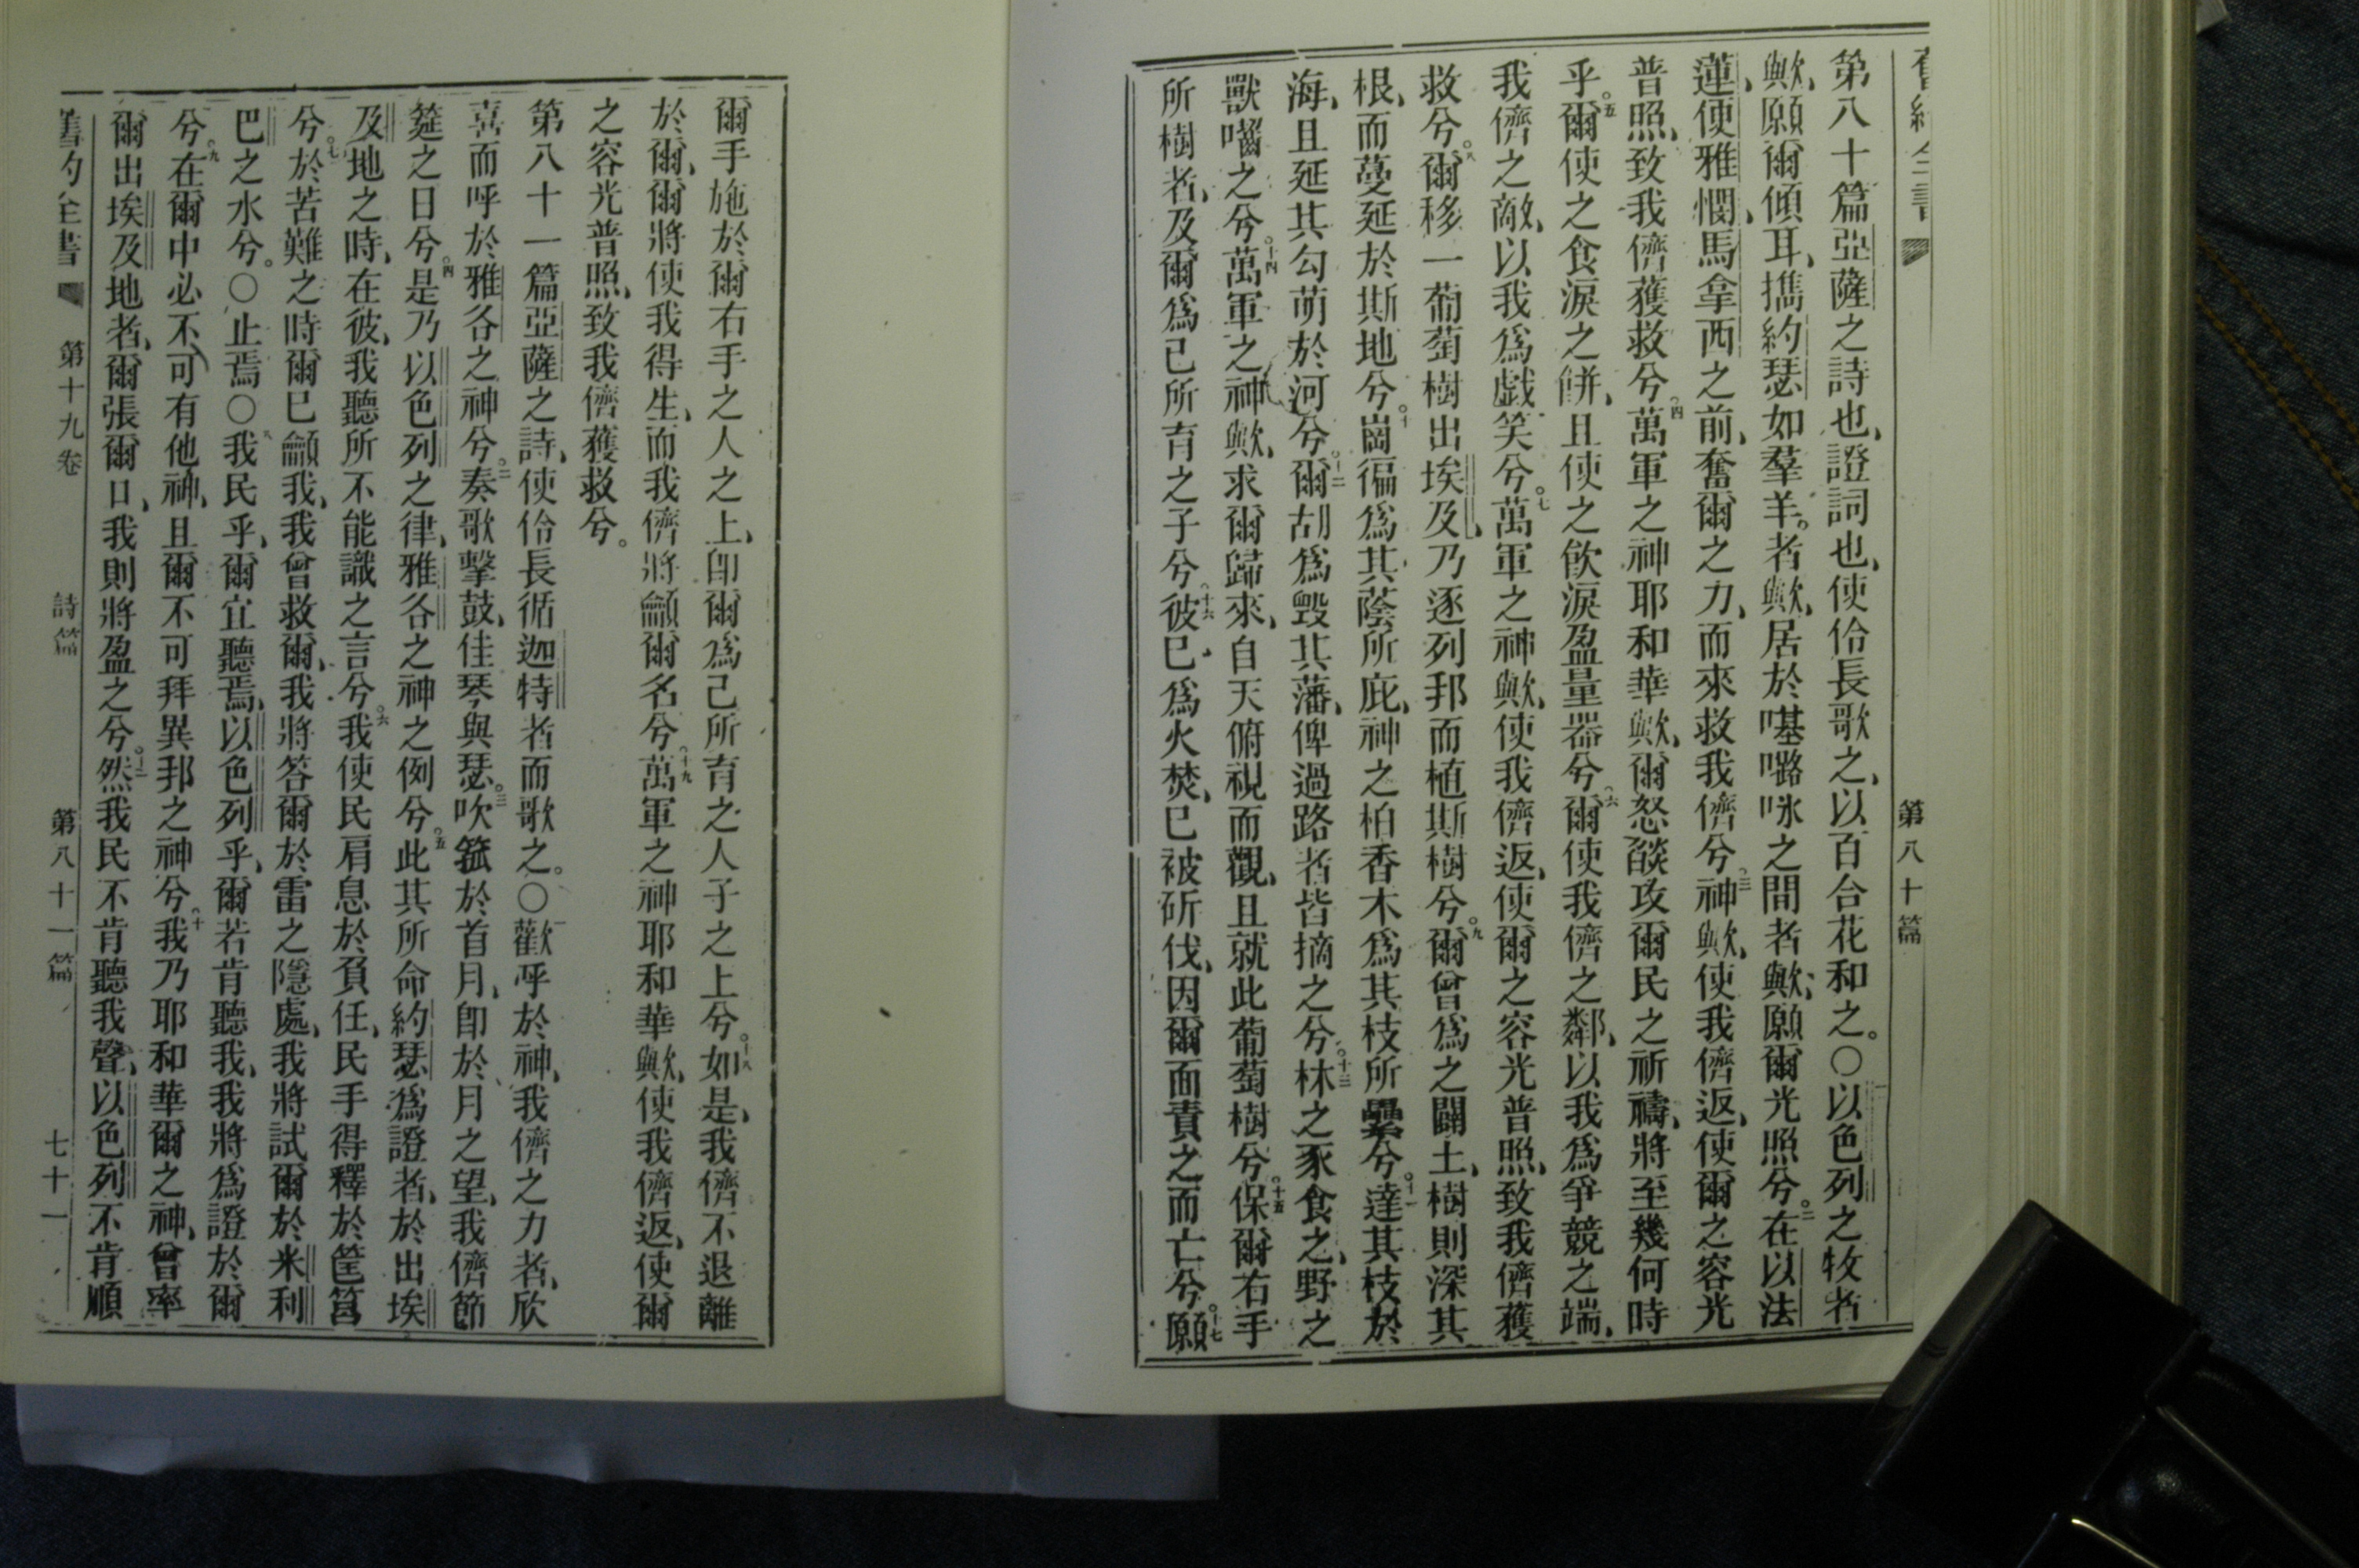 第八十篇亞薩之詩也、證詞也、使伶長歌之、以百合花和之。○一以色列之牧者
歟、願爾傾耳、攜約瑟如羣羊。者歟、居於𠼻𡀔咏之間者歟、願爾光照兮。二在以法
蓮、使雅憫、馬拿西之前、奮爾之力、而來救我儕兮。三神歟、使我儕返、使爾之容光
普照、致我儕獲救兮。四萬軍之神耶和華歟、爾怒燄攻爾民之祈禱、將至幾何時
乎。五爾使之食淚之餅、且使之飲淚盈量器兮。六爾使我儕之鄰、以我爲爭競之端、
我儕之敵、以我爲戲笑兮。七萬軍之神歟、使我儕返、使爾之容光普照、致我儕獲
救兮。八爾移一葡萄樹出埃及、乃逐列邦而植斯樹兮。九爾曾爲之闢土、樹則深其
根、而蔓延於斯地兮。十崗徧爲其蔭所庇、神之柏香木爲其枝所纍兮。十一達其枝於
海、且延其勾萌於河兮。十二爾胡爲毀其藩、俾過路者皆摘之兮。十三林之豕食之、野之
獸嚙之兮。十四萬軍之神歟、求爾歸來、自天俯視而觀、且就此葡萄樹兮。十五保爾右手
所樹者、及爾爲己所育之子兮。十六彼已爲火焚、已被斫伐、因爾面責之而亡兮。十七願
舊約全書
第八十篇
爾手施於爾右手之人之上、卽爾爲己所育之人子之上兮。十八如是、我儕不退離
於爾、爾將使我得生、而我儕將龥爾名兮。十九萬軍之神耶和華歟、使我儕返、使爾
之容光普照、致我儕獲救兮。
第八十一篇亞薩之詩、使伶長循迦特者而歌之。○一歡呼於神、我儕之力者、欣
喜而呼於雅各之神兮。二奏歌擊鼓、佳琴與瑟。三吹箛於首月、卽於月之望、我儕節
筵之日兮。四是乃以色列之律、雅各之神之例兮。五此其所命約瑟爲證者、於出埃
及地之時、在彼、我聽所不能識之言兮。六我使民肩息於負任、民手得釋於筐筥
兮。七於苦難之時爾已龥我、我曾救爾、我將答爾於雷之隱處、我將試爾於米利
巴之水兮。○止焉○八我民乎、爾宜聽焉、以色列乎、爾若肯聽我、我將爲證於爾
兮。九在爾中必不可有他神、且爾不可拜異邦之神兮。十我乃耶和華爾之神、曾率
爾出埃及地者、爾張爾口、我則將盈之兮。十一然我民不肯聽我聲、以色列不肯順
舊約全書 第十九卷 詩篇 第八十一篇 七十一